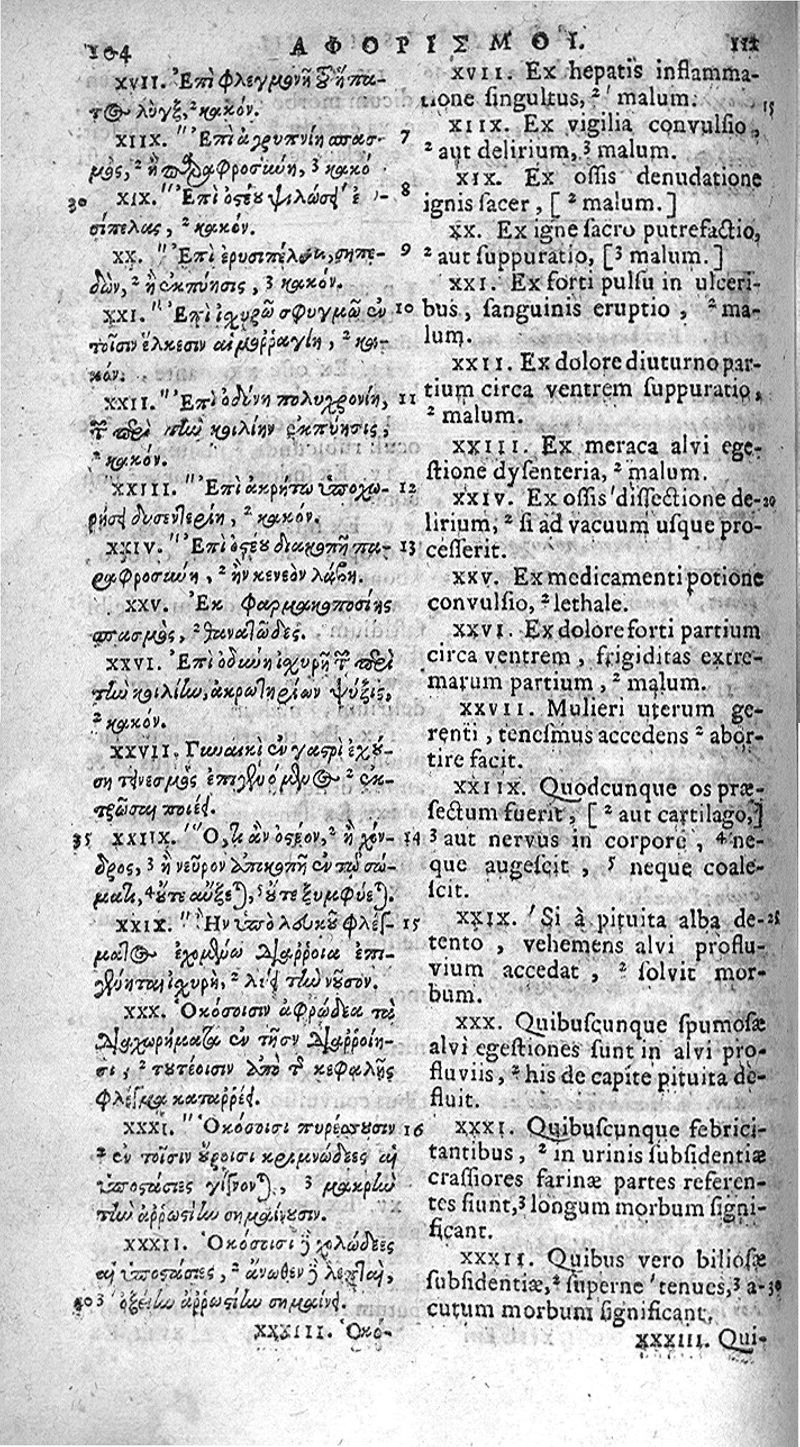 104 ΑΦΟΡΙΣΜΟΙ. III
XVII. Ἐπὶ φλεγμονῇ τοῦ ἥπα-
τος λὺγξ, ² κακόν.
XIIX. " Ἐπὶ ἀγρυπνίῃ σπασ- 7
μὸς, ² ἢ παραφροσύνη, ³ κακό
30 XIX. " Ἐπὶ ὀστέου ψιλώσει ἐ 8
σίπελας, ² κακόν.
XX. " Ἐπὶ ἐρυσιπέλατι, σηπε- 9
δὼν, ² ἢ ἐκπύησις, ³ κακόν.
XXI. " Ἐπὶ ἰσχυρῷ σφυγμῷ ἐν 10
τοῖσιν ἕλκεσιν αἱμοῤῥαγίη, ² κα-
κόν.
XXII. " Ἐπὶ ὀδύνῃ πολυχρονίῃ, 11
τῶν περὶ τὴν κοιλίην ἐκπύησις,
² κακόν.
XXIII. " Ἐπὶ ἀκρήτῳ ὑποχω- 12
ρήσει δυσεντερίη, ² κακόν.
XXIV. " Ἐπὶ ὀστέου διακοπῇ πα- 13
ραφροσύνη, ² ἢν κενεὸν λάβῃ.
XXV. Ἐκ φαρμακοποσίης
σπασμὸς, ² θανατῶδες.
XXVI. Ἐπὶ ὀδύνῃ ἰσχυρῇ τῶν περὶ
τὴν κοιλίην, ἀκρωτηρίων ψύξις,
² κακόν.
XXVII. Γυναικὶ ἐν γαστρὶ ἐχού-
σῃ τεινεσμὸς ἐπιγενόμενος ² ἐκ-
τρῶσαι ποιέει.
35 XXIIX. " Ὅ, τι ἂν ὀστέον, ² ἢ χόν- 14
δρος, ³ ἢ νεῦρον ἀποκοπῇ ἐν τῷ σώ-
ματι, ⁴ οὔτε αὔξεται, ⁵ οὔτε ξυμφύεται.
XXIX. " Ἢν ὑπὸ λευκοῦ φλέγ- 15
ματος ἐχομένῳ διάῤῥοια ἐπι-
γένηται ἰσχυρὴ, ² λύει τὴν νοῦσον.
XXX. Ὁκόσοισιν ἀφρώδεα τὰ
διαχωρήματα ἐν τῇσιν διαῤῥοίῃ-
σι, ² τουτέοισιν ἀπὸ τῆς κεφαλῆς
φλέγμα καταῤῥέει.
XXXI. " Ὁκόσοισι πυρέσσουσιν 16
² ἐν τοῖσιν οὔροισι κριμνώδεες αἱ
ὑποστάσιες γίγνονται, ³ μακρὴν
τὴν ἀῤῥωστίην σημαίνουσιν.
XXXII. Ὁκόσοισι δὲ χολώδεες
αἱ ὑποστάσιες, ² ἄνωθεν δὲ λεπταὶ,
40 ³ ὀξείην ἀῤῥωστίην σημαίνει.
XXXIII. Ὁκό-
XVII. Ex hepatis inflamma-
tione singultus, ² malum. 15
XIIX. Ex vigilia convulsio,
² aut delirium, ³ malum.
XIX. Ex ossis denudatione
ignis sacer, [ ² malum. ]
XX. Ex igne sacro putrefactio,
² aut suppuratio, [ ³ malum. ]
XXI. Ex forti pulsu in ulceri-
bus, sanguinis eruptio, ² ma-
lum.
XXII. Ex dolore diuturno par-
tium circa ventrem suppuratio,
² malum.
XXIII. Ex meraca alvi ege-
stione dysenteria, ² malum.
XXIV. Ex ossis ' dissectione de- 20
lirium, ² si ad vacuum usque pro-
cesserit.
XXV. Ex medicamenti potione
convulsio, ² lethale.
XXVI. Ex dolore forti partium
circa ventrem, frigiditas extre-
marum partium, ² malum.
XXVII. Mulieri uterum ge-
renti, tenesmus accedens ² abor-
tire facit.
XXIIX. Quodcunque os præ-
sectum fuerit, [ ² aut cartilago, ]
³ aut nervus in corpore, ⁴ ne-
que augescit, ⁵ neque coale-
scit.
XXIX. ' Si à pituita alba de- 25
tento, vehemens alvi proflu-
vium accedat, ² solvit mor-
bum.
XXX. Quibuscunque spumosæ
alvi egestiones sunt in alvi pro-
fluviis, ² his de capite pituita de-
fluit.
XXXI. Quibuscunque febrici-
tantibus, ² in urinis subsidentiæ
crassiores farinæ partes referen-
tes fiunt, ³ longum morbum signi-
ficant.
XXXII. Quibus vero biliosæ
subsidentiæ, ² superne ' tenues, ³ a- 30
cutum morbum significant.
XXXIII. Qui-